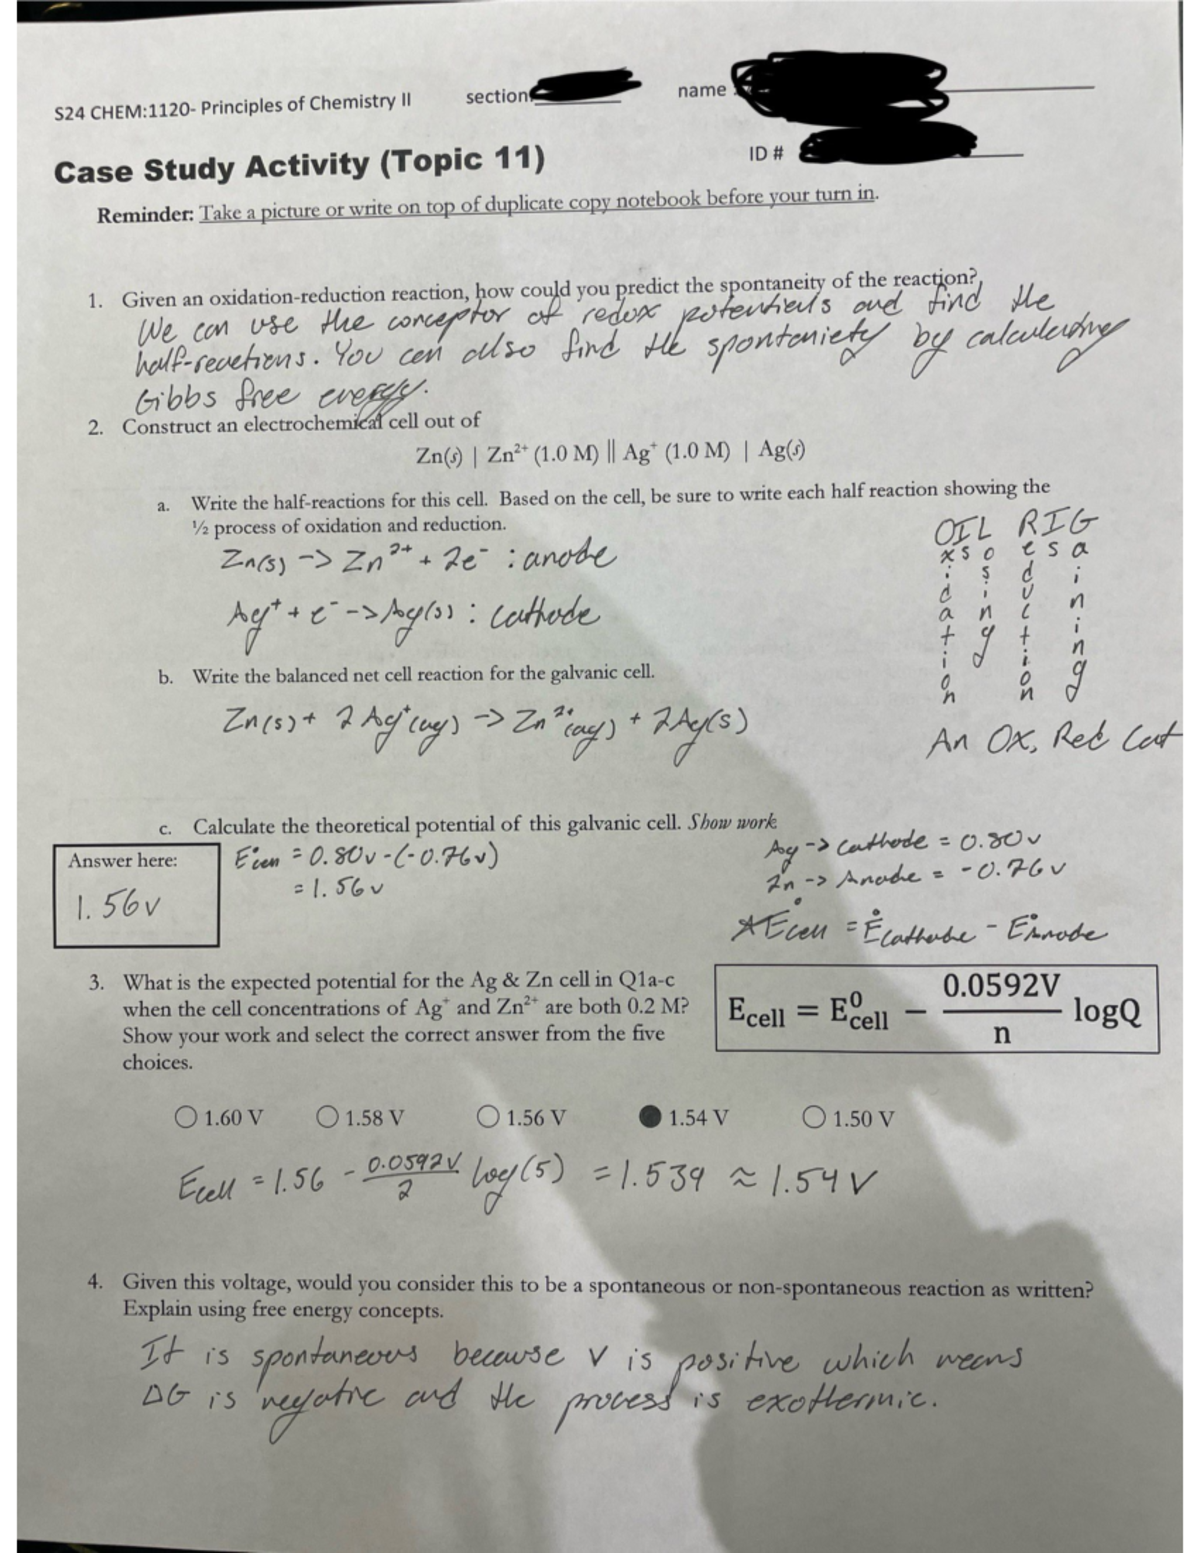 S24 CHEM:1120- Principles of Chemistry II section: name
ID #
Case Study Activity (Topic 11)
Reminder: Take a picture or write on top of duplicate copy notebook before your turn in.
1. Given an oxidation-reduction reaction, how could you predict the spontaneity of the reaction?
We can use the conceptor of redox potentials and find the
half-reactions. You can also find the spontaniety by calculating
Gibbs free energy.
2. Construct an electrochemical cell out of
Zn(s) | Zn²⁺ (1.0 M) || Ag⁺ (1.0 M) | Ag(s)
a. Write the half-reactions for this cell. Based on the cell, be sure to write each half reaction showing the
½ process of oxidation and reduction.
Zn(s) -> Zn²⁺ + 2e⁻ : anode
Ag⁺ + e⁻ -> Ag(s) : cathode
OIL RIG
Oxidation Is Losing Reduction Is Gaining
b. Write the balanced net cell reaction for the galvanic cell.
Zn(s) + 2Ag⁺(aq) -> Zn²⁺(aq) + 2Ag(s)
An Ox, Red Cat
c. Calculate the theoretical potential of this galvanic cell. Show work
Answer here:
1.56v
E°cell = 0.80v-(-0.76v)
= 1.56v
Ag -> Cathode = 0.80v
Zn -> Anode = -0.76v
*E°cell = E°cathode - E°Anode
3. What is the expected potential for the Ag & Zn cell in Q1a-c
when the cell concentrations of Ag⁺ and Zn²⁺ are both 0.2 M?
Show your work and select the correct answer from the five
choices.
Ecell = E⁰cell − 0.0592V/n logQ
1.60 V 1.58 V 1.56 V 1.54 V 1.50 V
Ecell = 1.56 - 0.0592V/2 log(5) = 1.539 ≈ 1.54V
4. Given this voltage, would you consider this to be a spontaneous or non-spontaneous reaction as written?
Explain using free energy concepts.
It is spontaneous because V is positive which means
ΔG is negative and the process is exothermic.